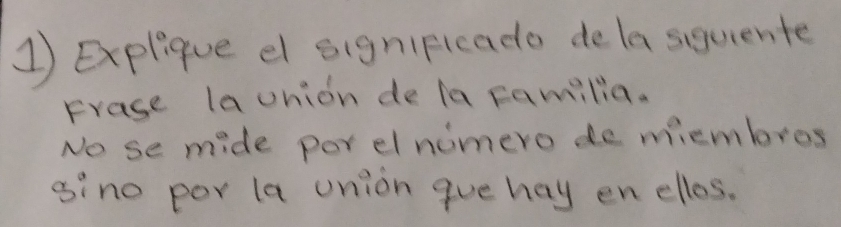 1) Explique el significado de la siguiente
Frase la unión de la Familia.
No se mide por el número de miembros
sino por la unión que hay en ellos.